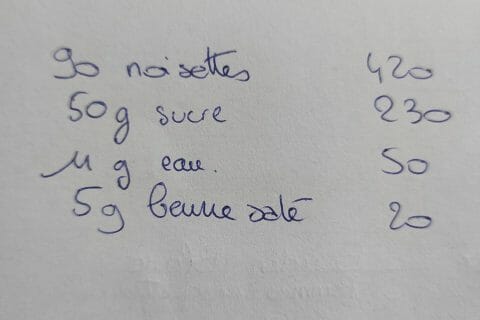 90 noisettes 420
50g sucre 230
11 g eau. 50
5g beurre salé 20